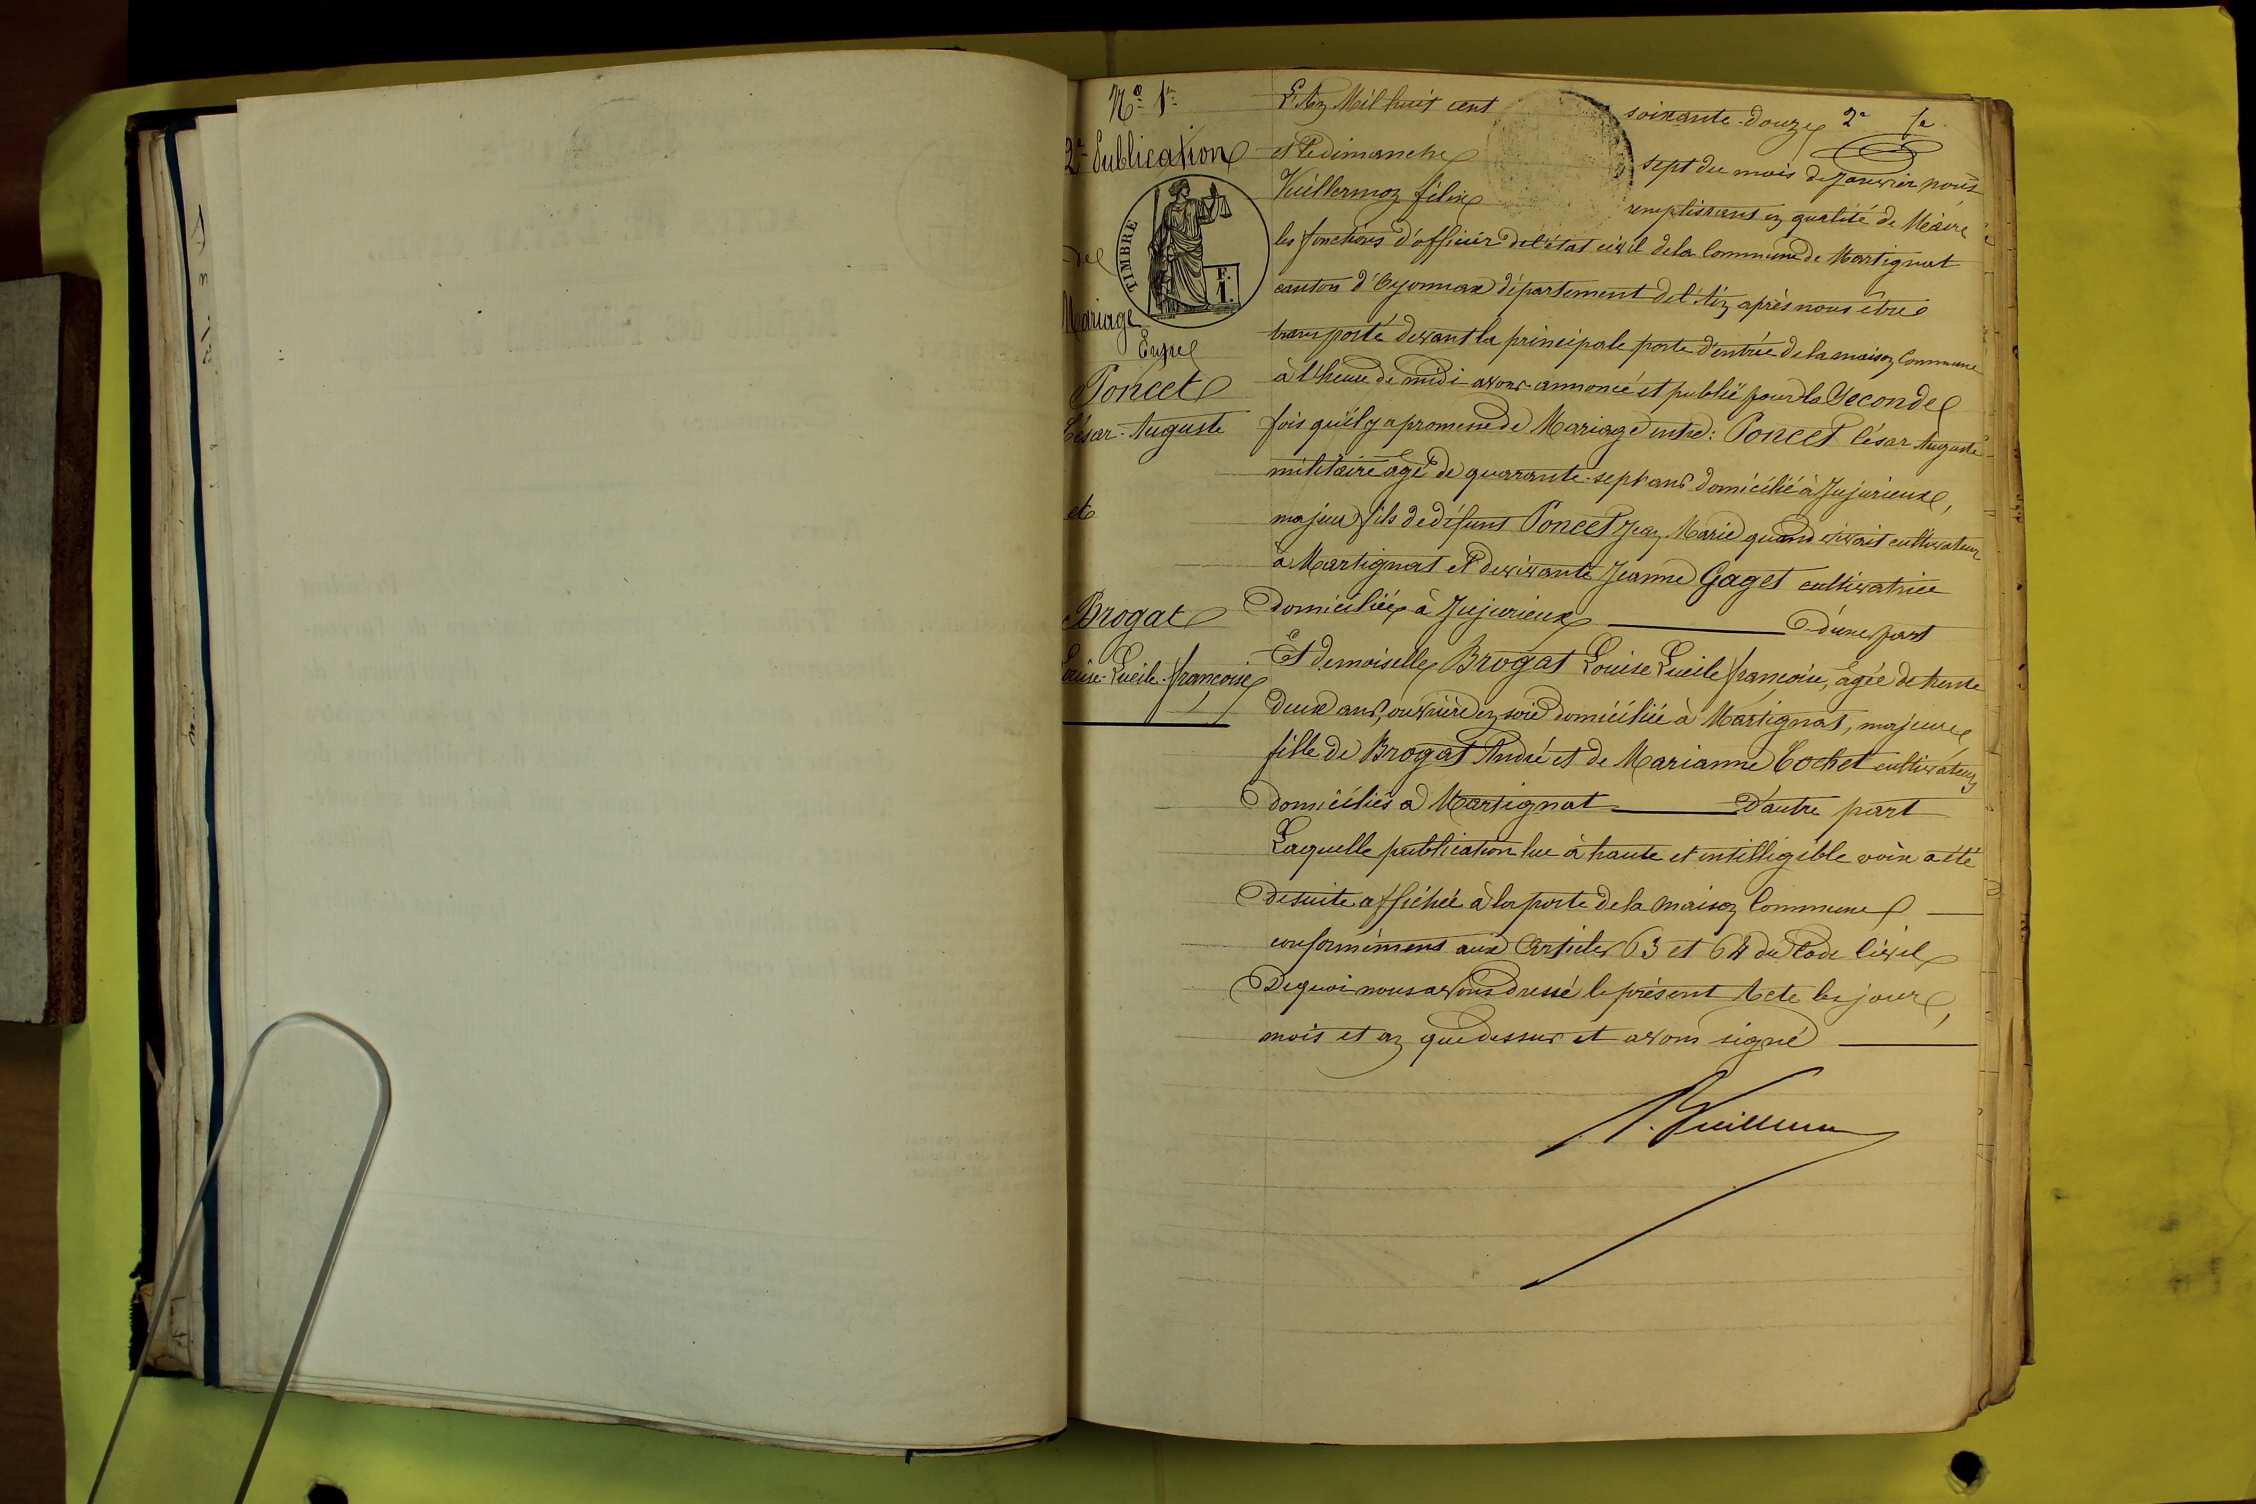 N° 1er
2e Publication
de
Mariage
Entre
Poncet
César-Auguste
et
Brogat
Louise-Lucile-françoise
TIMBRE
F.
1.
L'An Mil huit cent soixante-douze 2e
et le dimanche sept du mois de Janvier nous
Vuillermoz félix remplissant en qualité de Maire
les fonctions d'officier de l'état civil de la Commune de Martignat
canton d'Oyonnax département de l'Ain, après nous être
transporté devant la principale porte d'entrée de la maison Commune
à l'heure de midi avons annoncé et publié pour la Seconde
fois qu'il y a promesse de Mariage entre: Poncet César Auguste
militaire agé de quarante-sept ans domicilié à Jujurieux,
majeur fils de défunt Poncet Jean Marie quand vivait cultivateur
à Martignat et de vivante Jeanne Gaget cultivatrice
domiciliée à Jujurieux d'une part
Et demoiselle Brogat Louise Lucile françoise, âgée de trente
deux ans, ouvrière en soie domiciliée à Martignat, majeure
fille de Brogat André et de Marianne Cochet cultivateurs
domiciliés à Martignat d'autre part
Laquelle publication lue à haute et intelligible voix a été
de suite affichée à la porte de la maison Commune
conformément aux Articles 63 et 64 du Code Civil
De quoi nous avons dressé le présent Acte les jour,
mois et an que dessus et avons signé